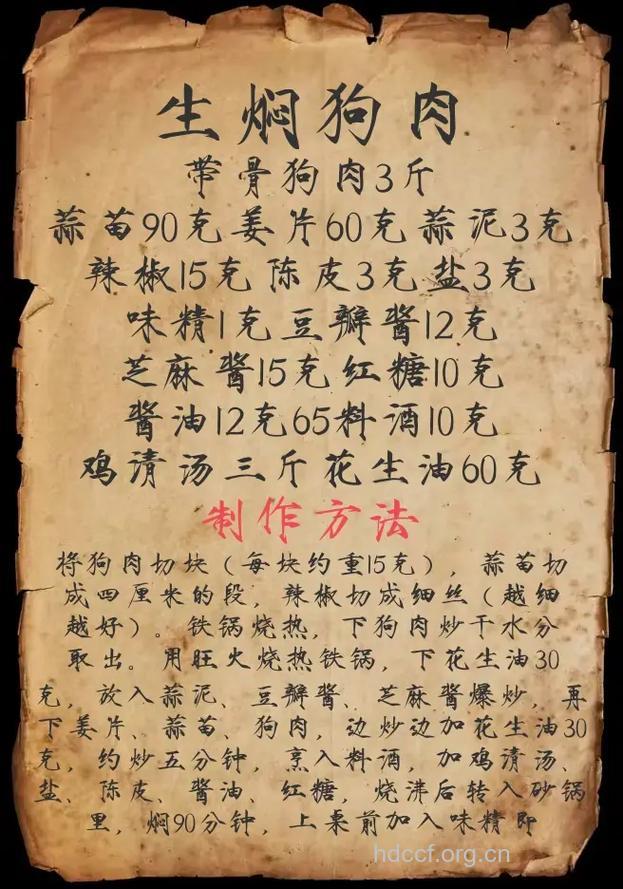 生焖狗肉
带骨狗肉3斤
蒜苗90克姜片60克蒜泥3克
辣椒15克陈皮3克盐3克
味精1克豆瓣酱12克
芝麻酱15克红糖10克
酱油12克65料酒10克
鸡清汤三斤花生油60克
制作方法
将狗肉切块（每块约重15克），蒜苗切
成四厘米的段，辣椒切成细丝（越细
越好）。铁锅烧热，下狗肉炒干水分
取出。用旺火烧热铁锅，下花生油30
克，放入蒜泥、豆瓣酱、芝麻酱爆炒，再
下姜片、蒜苗、狗肉，边炒边加花生油30
克，约炒五分钟，烹入料酒，加鸡清汤、
盐、陈皮、酱油、红糖，烧沸后转入砂锅
里，焖90分钟，上桌前加入味精即
hdccf.org.cn